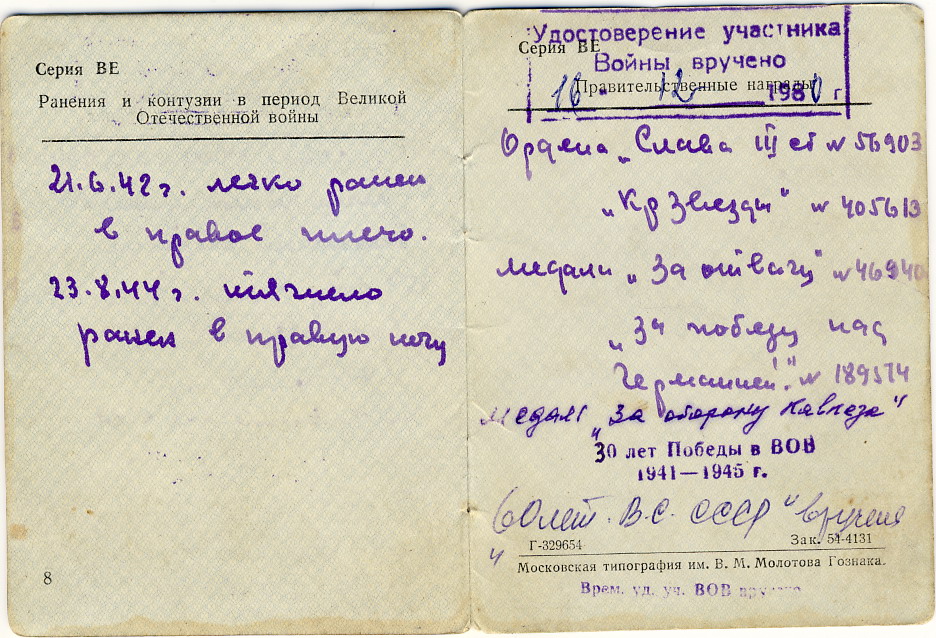 Серия ВЕ
Ранения и контузии в период Великой
Отечественной войны
21.6.42 г. легко ранен
в правое плечо.
23.8.44 г. тяжело
ранен в правую ногу
8
Удостоверение участника
Серия ВЕ
Войны вручено
Правительственные награды
16 12 1980 г
Ордена „Слава III ст № 56903
„Кр Звезды" № 405613
медали „За отвагу" № 46940
„За победу над
Германией." № 189574
медаль „За оборону Кавказа"
30 лет Победы в ВОВ
1941—1945 г.
„60 лет. В.С. СССР" вручена
Г-329654 Зак. 54-4131
Московская типография им. В. М. Молотова Гознака.
Врем. уд. уч. ВОВ вручено